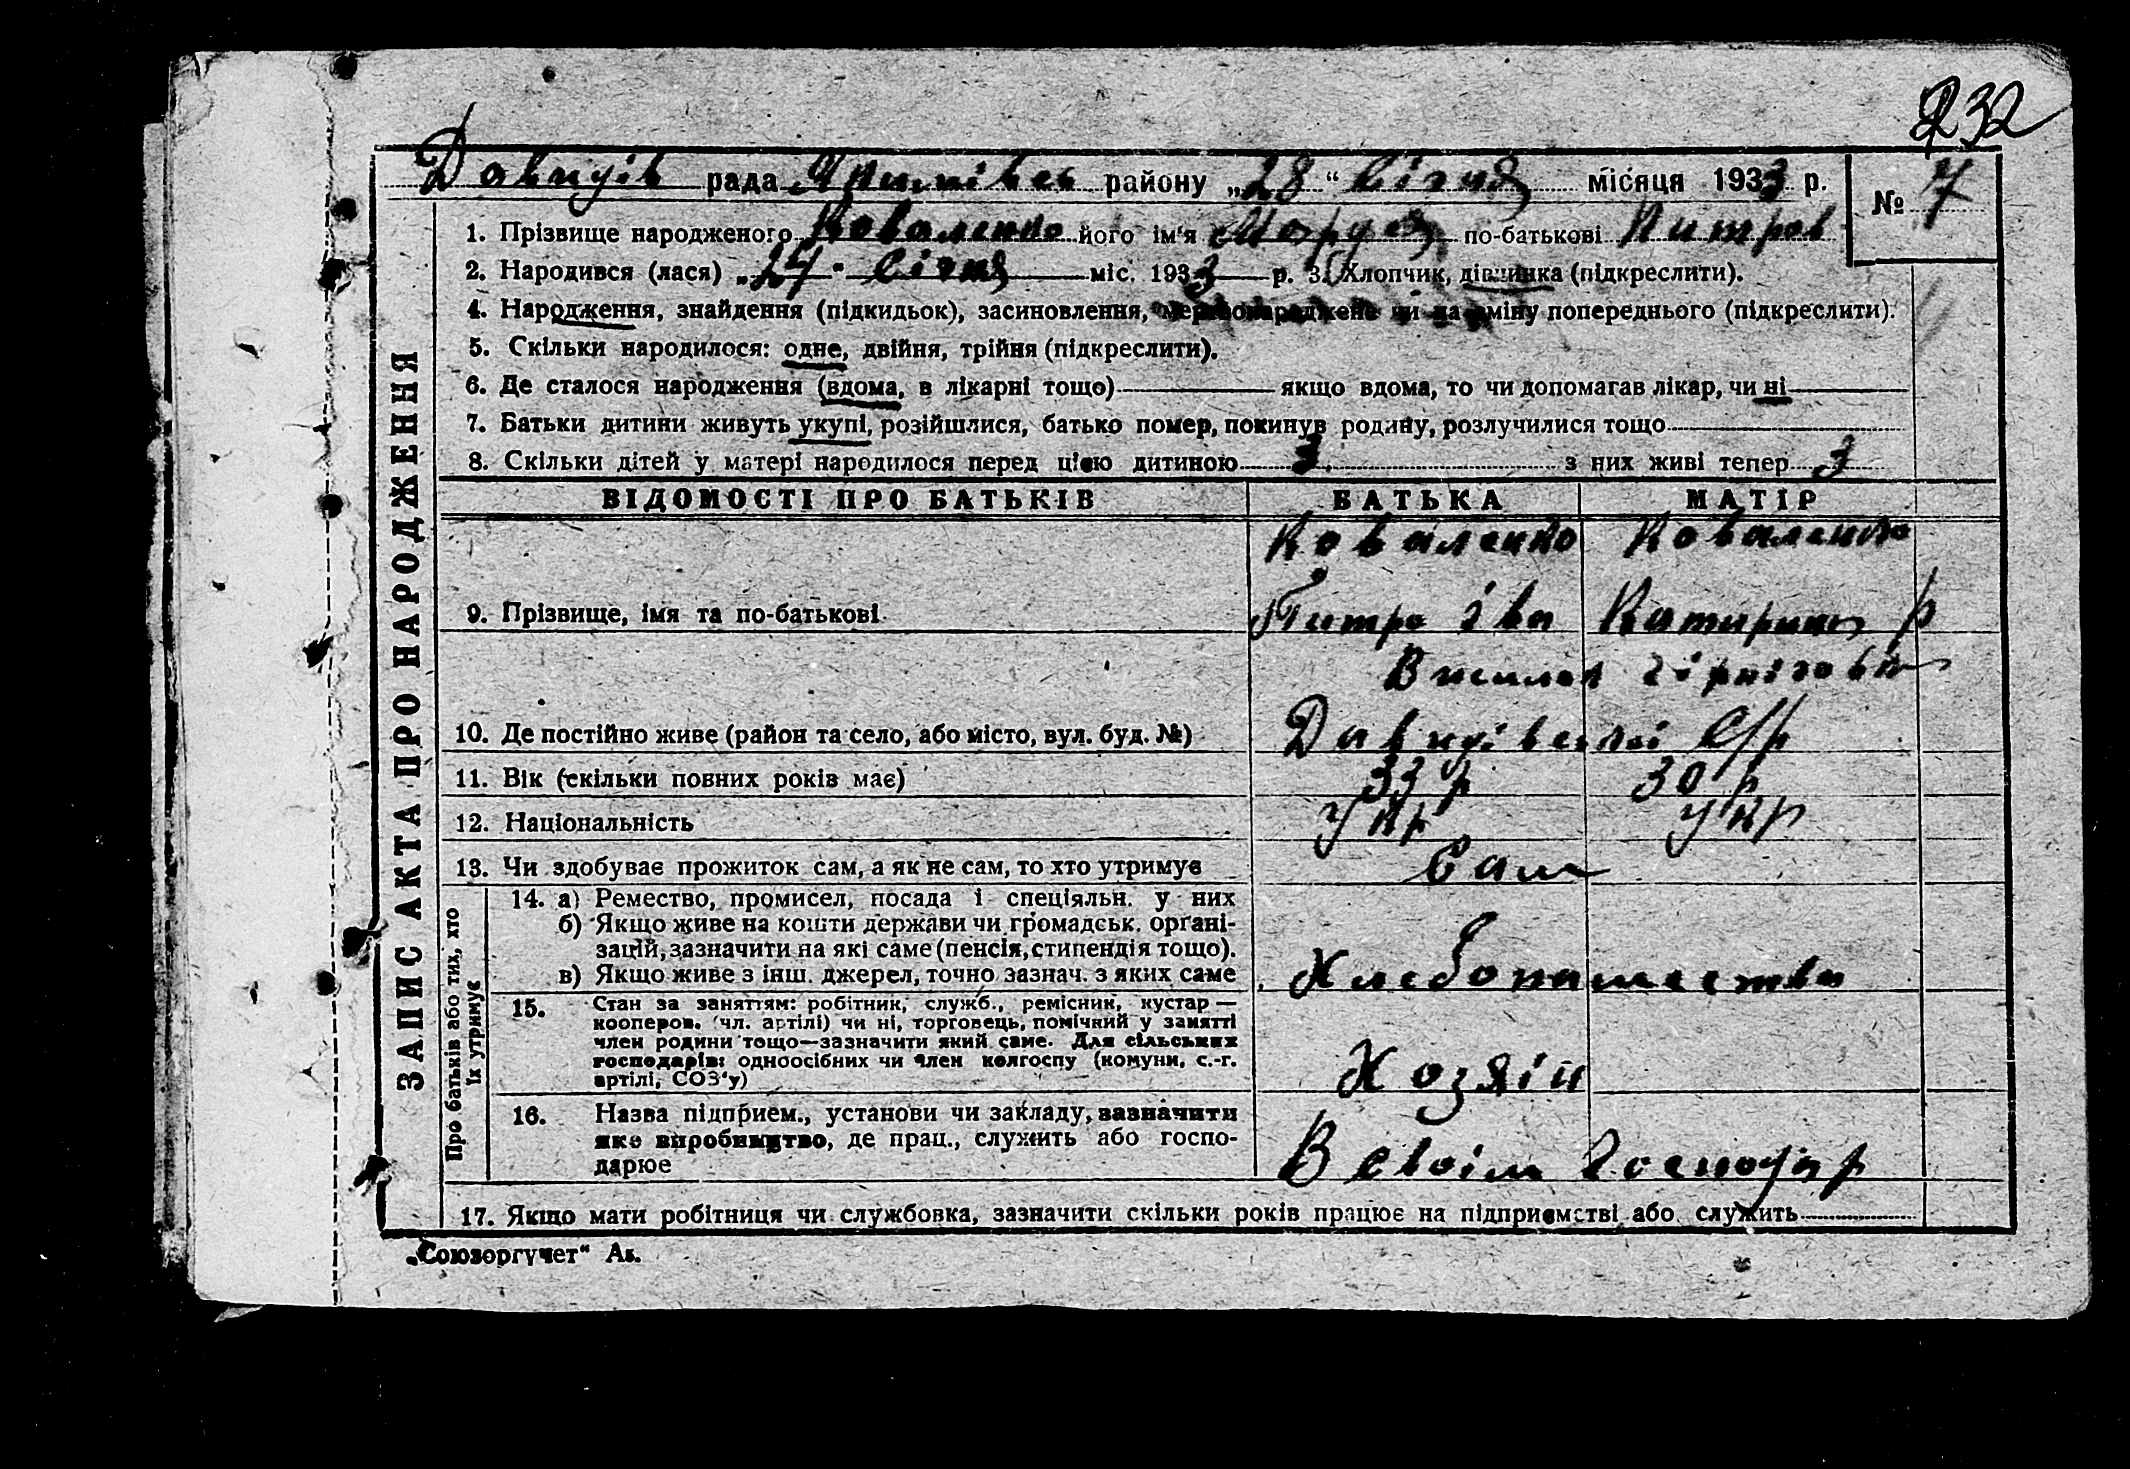 232
Давидів рада району „28“ Січня місяця 1933 р. № 7
1. Прізвище народженого Коваленко його ім'я по-батькові Питров
2. Народився (лася) „24“ Січня міс. 1933 р. 3. Хлопчик, дівчинка (підкреслити).
4. Народження, знайдення (підкидьок), засиновлення, мертвонароджене чи на зміну попереднього (підкреслити).
5. Скільки народилося: одне, двійня, трійня (підкреслити).
6. Де сталося народження (вдома, в лікарні тощо) якщо вдома, то чи допомагав лікар, чи ні
7. Батьки дитини живуть укупі, розійшлися, батько помер, покинув родину, розлучилися тощо
8. Скільки дітей у матері народилося перед цією дитиною 3 з них живі тепер 3
ЗАПИС АКТА ПРО НАРОДЖЕННЯ
ВІДОМОСТІ ПРО БАТЬКІВ БАТЬКА МАТІР
Коваленко Коваленко
9. Прізвище, імя та по-батькові Питро Іва Катирина р
10. Де постійно живе (район та село, або місто, вул. буд. №) Давидівської С/р
11. Вік (скільки повних років має) 33 р 30 р
12. Національність Укр Укр
13. Чи здобуває прожиток сам, а як не сам, то хто утримує Сам
Про батьків або тих, хто їх утримує
14. а) Ремество, промисел, посада і спеціяльн. у них
б) Якщо живе на кошти держави чи громадськ. органі-
зацій, зазначити на які саме (пенсія, стипендія тощо).
в) Якщо живе з інш. джерел, точно зазнач. з яких саме Хлебопашество
15. Стан за заняттям: робітник, служб., ремісник, кустар —
кооперов. (чл. артілі) чи ні, торговець, помічний у занятті
член родини тощо—зазначити який саме. Для сільських
господарів: одноосібних чи член колгоспу (комуни, с.-г.
артілі, СОЗ'у) Хозяін
16. Назва підприєм., установи чи закладу, зазначити
яке виробництво, де прац., служить або госпо-
дарює В своім господар
17. Якщо мати робітниця чи службовка, зазначити скільки років працює на підприємстві або служить
„Союзоргучет“